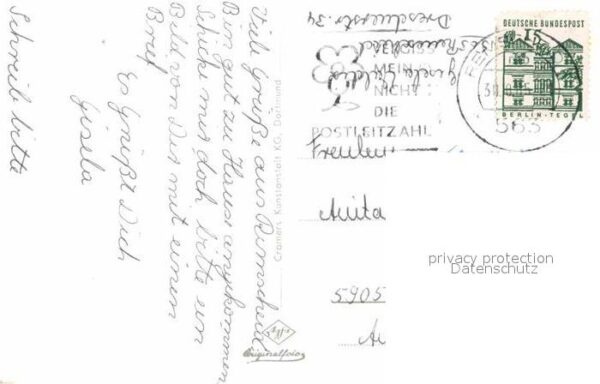 Viele Grüße aus Remscheid
Bin gut zu Hause angekommen
Schicke mir doch bitte ein
Bild von Dir mit einen
Brief
Es Grüßt Dich
Gisela
Schreib bitte
Cramers Kunstanstalt KG, Dortmund
Agfa
Originalfoto
Gisela
Remscheid
Drescherstr. 34
MEIN
NICHT
DIE
POSTLEITZAHL
563
DEUTSCHE BUNDESPOST
15
BERLIN-TEGEL
Anita
5905
privacy protection
Datenschutz